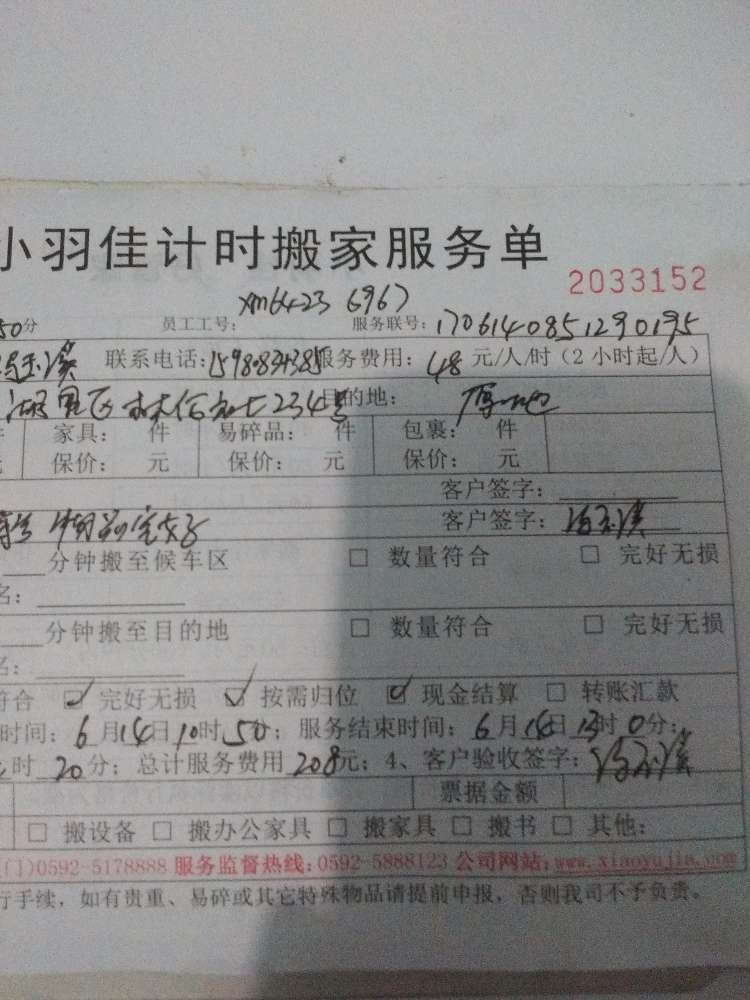 小羽佳计时搬家服务单
2033152
xm6423 6967
50分 员工工号: 服务联号: 1706140851290195
联系电话: 服务费用: 48 元/人/时（2小时起/人）
234号 目的地: 原地
件 家具: 件 易碎品: 件 包裹: 件
元 保价: 元 保价: 元 保价: 元
客户签字:
客户签字:
分钟搬至候车区 □ 数量符合 □ 完好无损
名:
分钟搬至目的地 □ 数量符合 □ 完好无损
名:
符合 ☑ 完好无损 ☑ 按需归位 ☑ 现金结算 □ 转账汇款
时间: 6月14日10时50分; 服务结束时间: 6月14日13时0分;
时 20分; 总计服务费用 208元; 4、客户验收签字:
票据金额
□ 搬设备 □ 搬办公家具 □ 搬家具 □ 搬书 □ 其他:
(1)0592-5178888 服务监督热线:0592-5888123 公司网站:www.xiaoyujia.com
行手续，如有贵重、易碎或其它特殊物品请提前申报，否则我司不予负责。